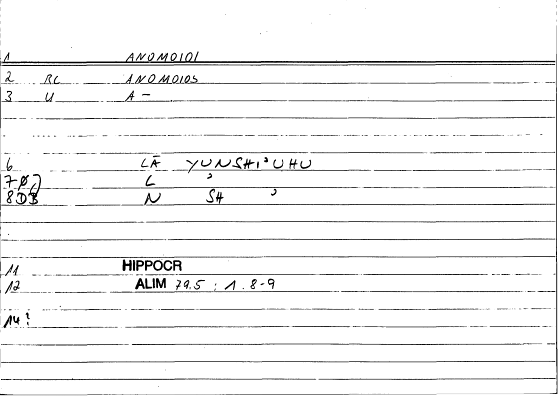 1 ANOMOIOI
2 RC ANOMOIOS
3 U A —
6 LĀ YUNSHI'UHU
7 Ø) L '
8 DB N SH '
11 HIPPOCR
12 ALIM 79.5 : 1.8-9
14?